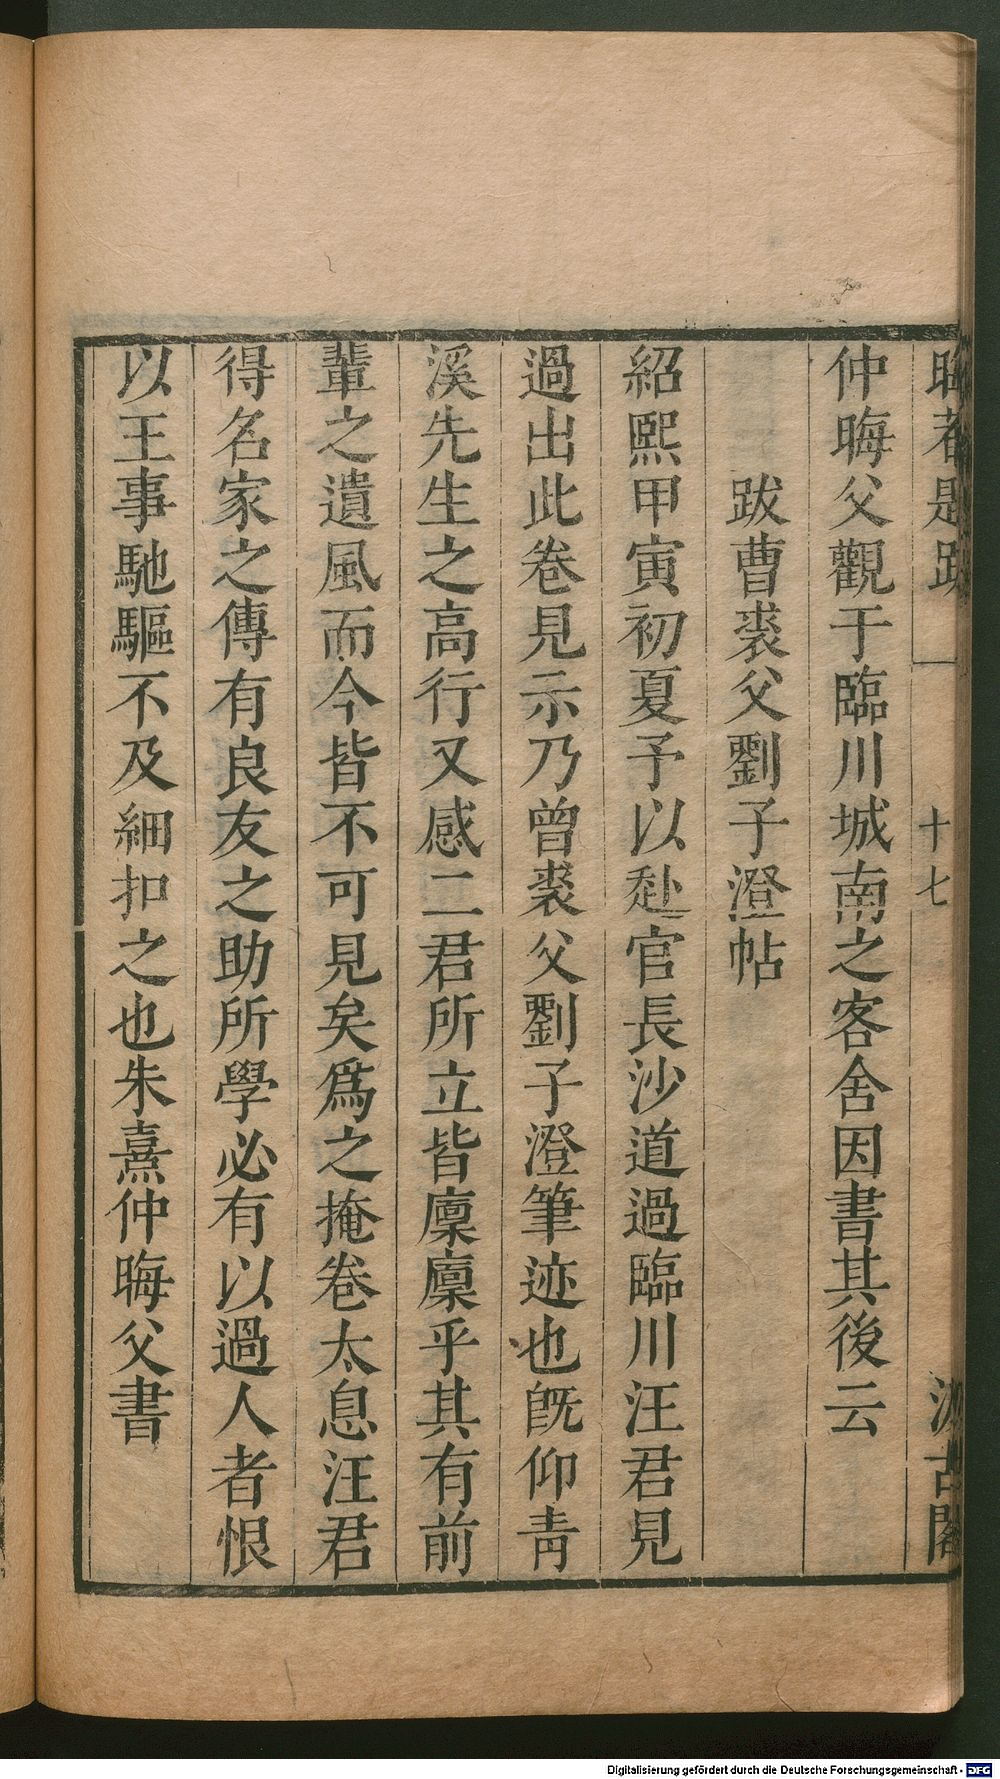 晦菴題跋 十七 汲古閣
仲晦父觀于臨川城南之客舍因書其後云
跋曹裘父劉子澄帖
紹熙甲寅初夏予以赴官長沙道過臨川汪君見
過出此卷見示乃曾裘父劉子澄筆迹也旣仰靑
溪先生之高行又感二君所立皆廩廩乎其有前
輩之遺風而今皆不可見矣爲之掩卷太息汪君
得名家之傳有良友之助所學必有以過人者恨
以王事馳驅不及細扣之也朱熹仲晦父書
Digitalisierung gefördert durch die Deutsche Forschungsgemeinschaft - DFG